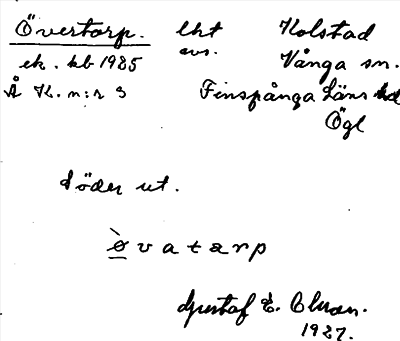 Övertorp. lht Kolstad
avs.
ek. kb 1985 Vånga sn.
Å K. n:r 3 Finspånga Läns hd
Ögl
Söder ut.
ø̀vatarp
Gustaf E.
1927.